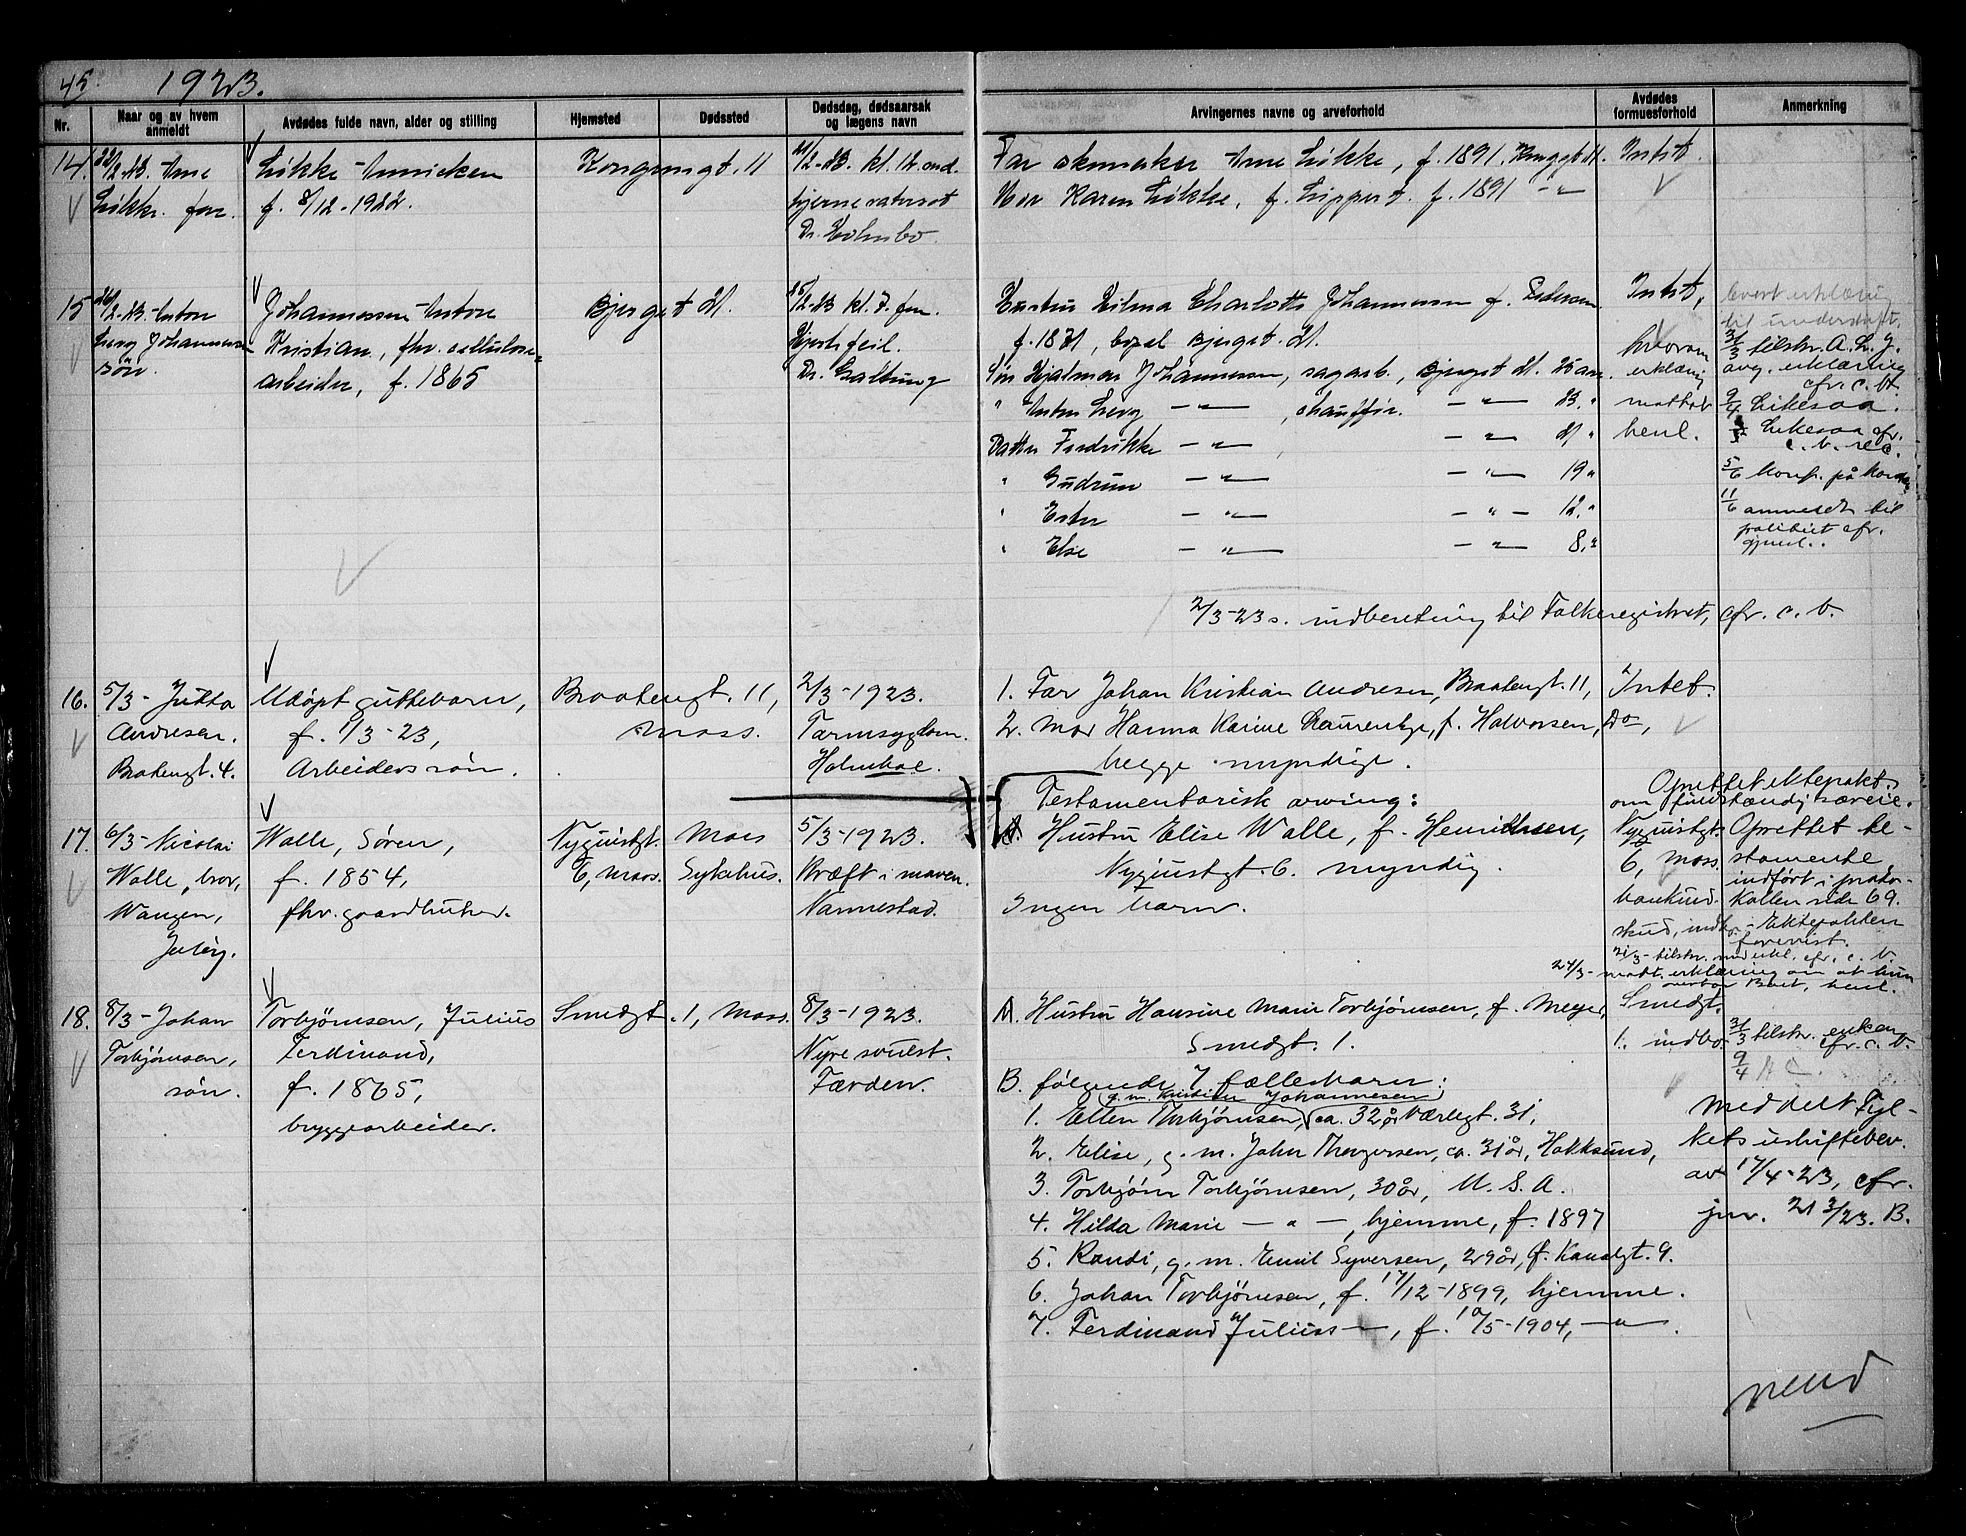 45. 1923.
Nr.
Naar og av hvem anmeldt
Avdødes fulde navn, alder og stilling
Hjemsted
Dødssted
Dødsdag, dødsaarsak og lægens navn
Arvingernes navne og arveforhold
Avdødes formuesforhold
Anmerkning
14. 22/2-23. Arne
Løkke
f. 8/12-1922.
Kongensgt. 11
21/2-23. kl. 12
Dr. Holmbo.
Far Arne Løkke, f. 1891.
Mor Karen Løkke, f. Lippert. f. 1891 -"-
Intet.
15 26/2-23 Anton
Levy Johannessen
søn.
Johannessen Anton
Kristian, fhv. cellulose-
arbeider, f. 1865
Bjerget 21.
25/2-23 kl. 7. fm.
Hjertefeil.
Dr. Galtung
Enstru Hilma Charlotte Johannessen f. Pedersen
f. 1871, bopæl Bjerget. 21.
Søn Hjalmar Johannessen, sagarb., Bjerget 21. 25 aar.
" Anton Levy -"- , chauffør. -"- 23. "
Datter Fredrikke -"- , -"- 21 "
" Gudrun -"- -"- 19 "
" Ester -"- -"- 12. "
" Else -"- -"- 8. "
Intet,
hvorom
erklæring
mottat
henl.
levert erklæring
til underskrift.
31/3 tilskr. A. L. J.
avg. erklæring
cfr. c. b.
9/4 Likesaa.
Likesaa cfr.
c. b. rec.
5/6 konf. på kontor
11/6 anmeldt til
politiet cfr.
2/3-23 s. indberetning til Folkeregistret, cfr. c. b.
16. 5/3 - Jutta
Andresen.
Braatengt. 4.
Udøpt guttebarn,
f. 1/3-23,
Arbeiders søn.
Braatengt. 11,
Moss.
2/3-1923.
Tarmsygdom.
Holmboe.
1. Far Johan Kristian Andresen, Braatengt. 11,
2. Mor Hanna Karine Laurentze, f. Halvorsen, Do,
begge myndige.
Intet.
17. 6/3-Nicolai
Walle, bror,
Wangen,
Jeløy.
Walle, Søren,
f. 1854,
fhv. gaardbruker.
Nyquistgt.
6, Moss.
Moss
Sykehus.
5/3-1923.
Kræft i maven.
Vannestad.
Testamentarisk arving:
Hustru Elise Walle, f. Henriksen,
Nyquistgt. 6. myndig.
Ingen barn.
Oprettet ektepakt
om fuldstændig særeie.
Nyquistgt.
6, Moss
Oprettet te-
stamente
indført i proto-
kollen side 69.
Ektepakten
forevist.
21/3-tilskr. cfr. c. b.
24/3- modt. erklæring om at hun
overtar Boet, henl.
18. 8/3-Johan
Torbjørnsen,
søn.
Torbjørnsen, Julius
Ferdinand,
f. 1865,
bryggearbeider.
Smedgt. 1, Moss.
8/3-1923.
Nyre svulst.
Færden.
A. Hustru Hansine Marie Torbjørnsen, f. Meyer,
Smedgt. 1.
B. følgende 7 fællesbarn:
g. m. Kristian Johannesen
1. Ellen Torbjørnsen, ca. 32 år Værlegt. 31,
2. Elise, g. m. John Thorgersen, ca. 31 år, Hokksund,
3. Torbjørn Torbjørnsen, 30 år, U. S. A.
4. Hilda Marie -"-, hjemme, f. 1897
5. Randi, g. m. Emil Syversen, 29 år, Kanalgt. 9.
6. Johan Torbjørnsen, f. 17/12-1899, hjemme.
7. Ferdinand Julius -"-, f. 10/5-1904, -"-.
Smedgt.
1. indbo.
31/3 tilskr. enken
cfr. c. b.
9/4
Meddelt Fyl-
kets uskiftebev.
av 17/4-23, cfr.
jnr. 213/23. B.